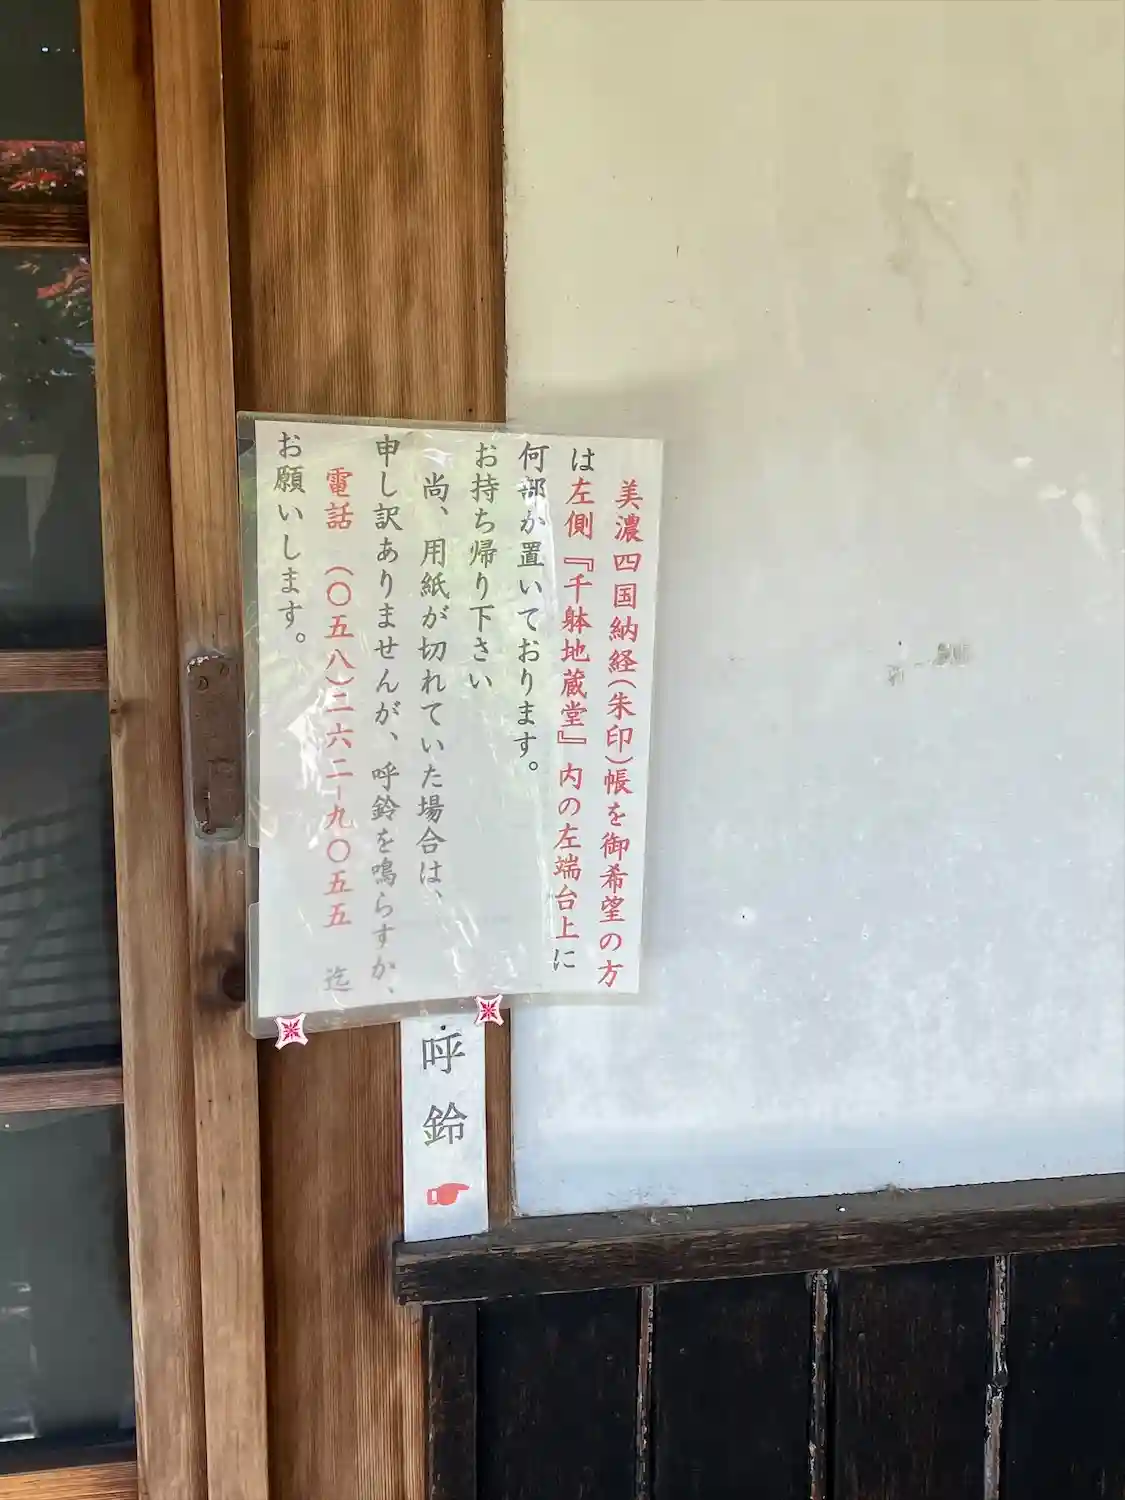 美濃四国納経(朱印)帳を御希望の方
は左側『千躰地蔵堂』内の左端台上に
何部か置いております。
お持ち帰り下さい
尚、用紙が切れていた場合は、
申し訳ありませんが、呼鈴を鳴らすか、
電話 (〇五八)二六二-九〇五五 迄
お願いします。
呼鈴